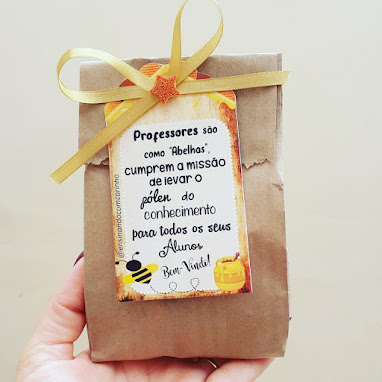 Professores são
como "Abelhas",
cumprem a missão
de levar o
pólen do
conhecimento
para todos os seus
Alunos
Bem-Vindo!
@ensinandocomcarinho